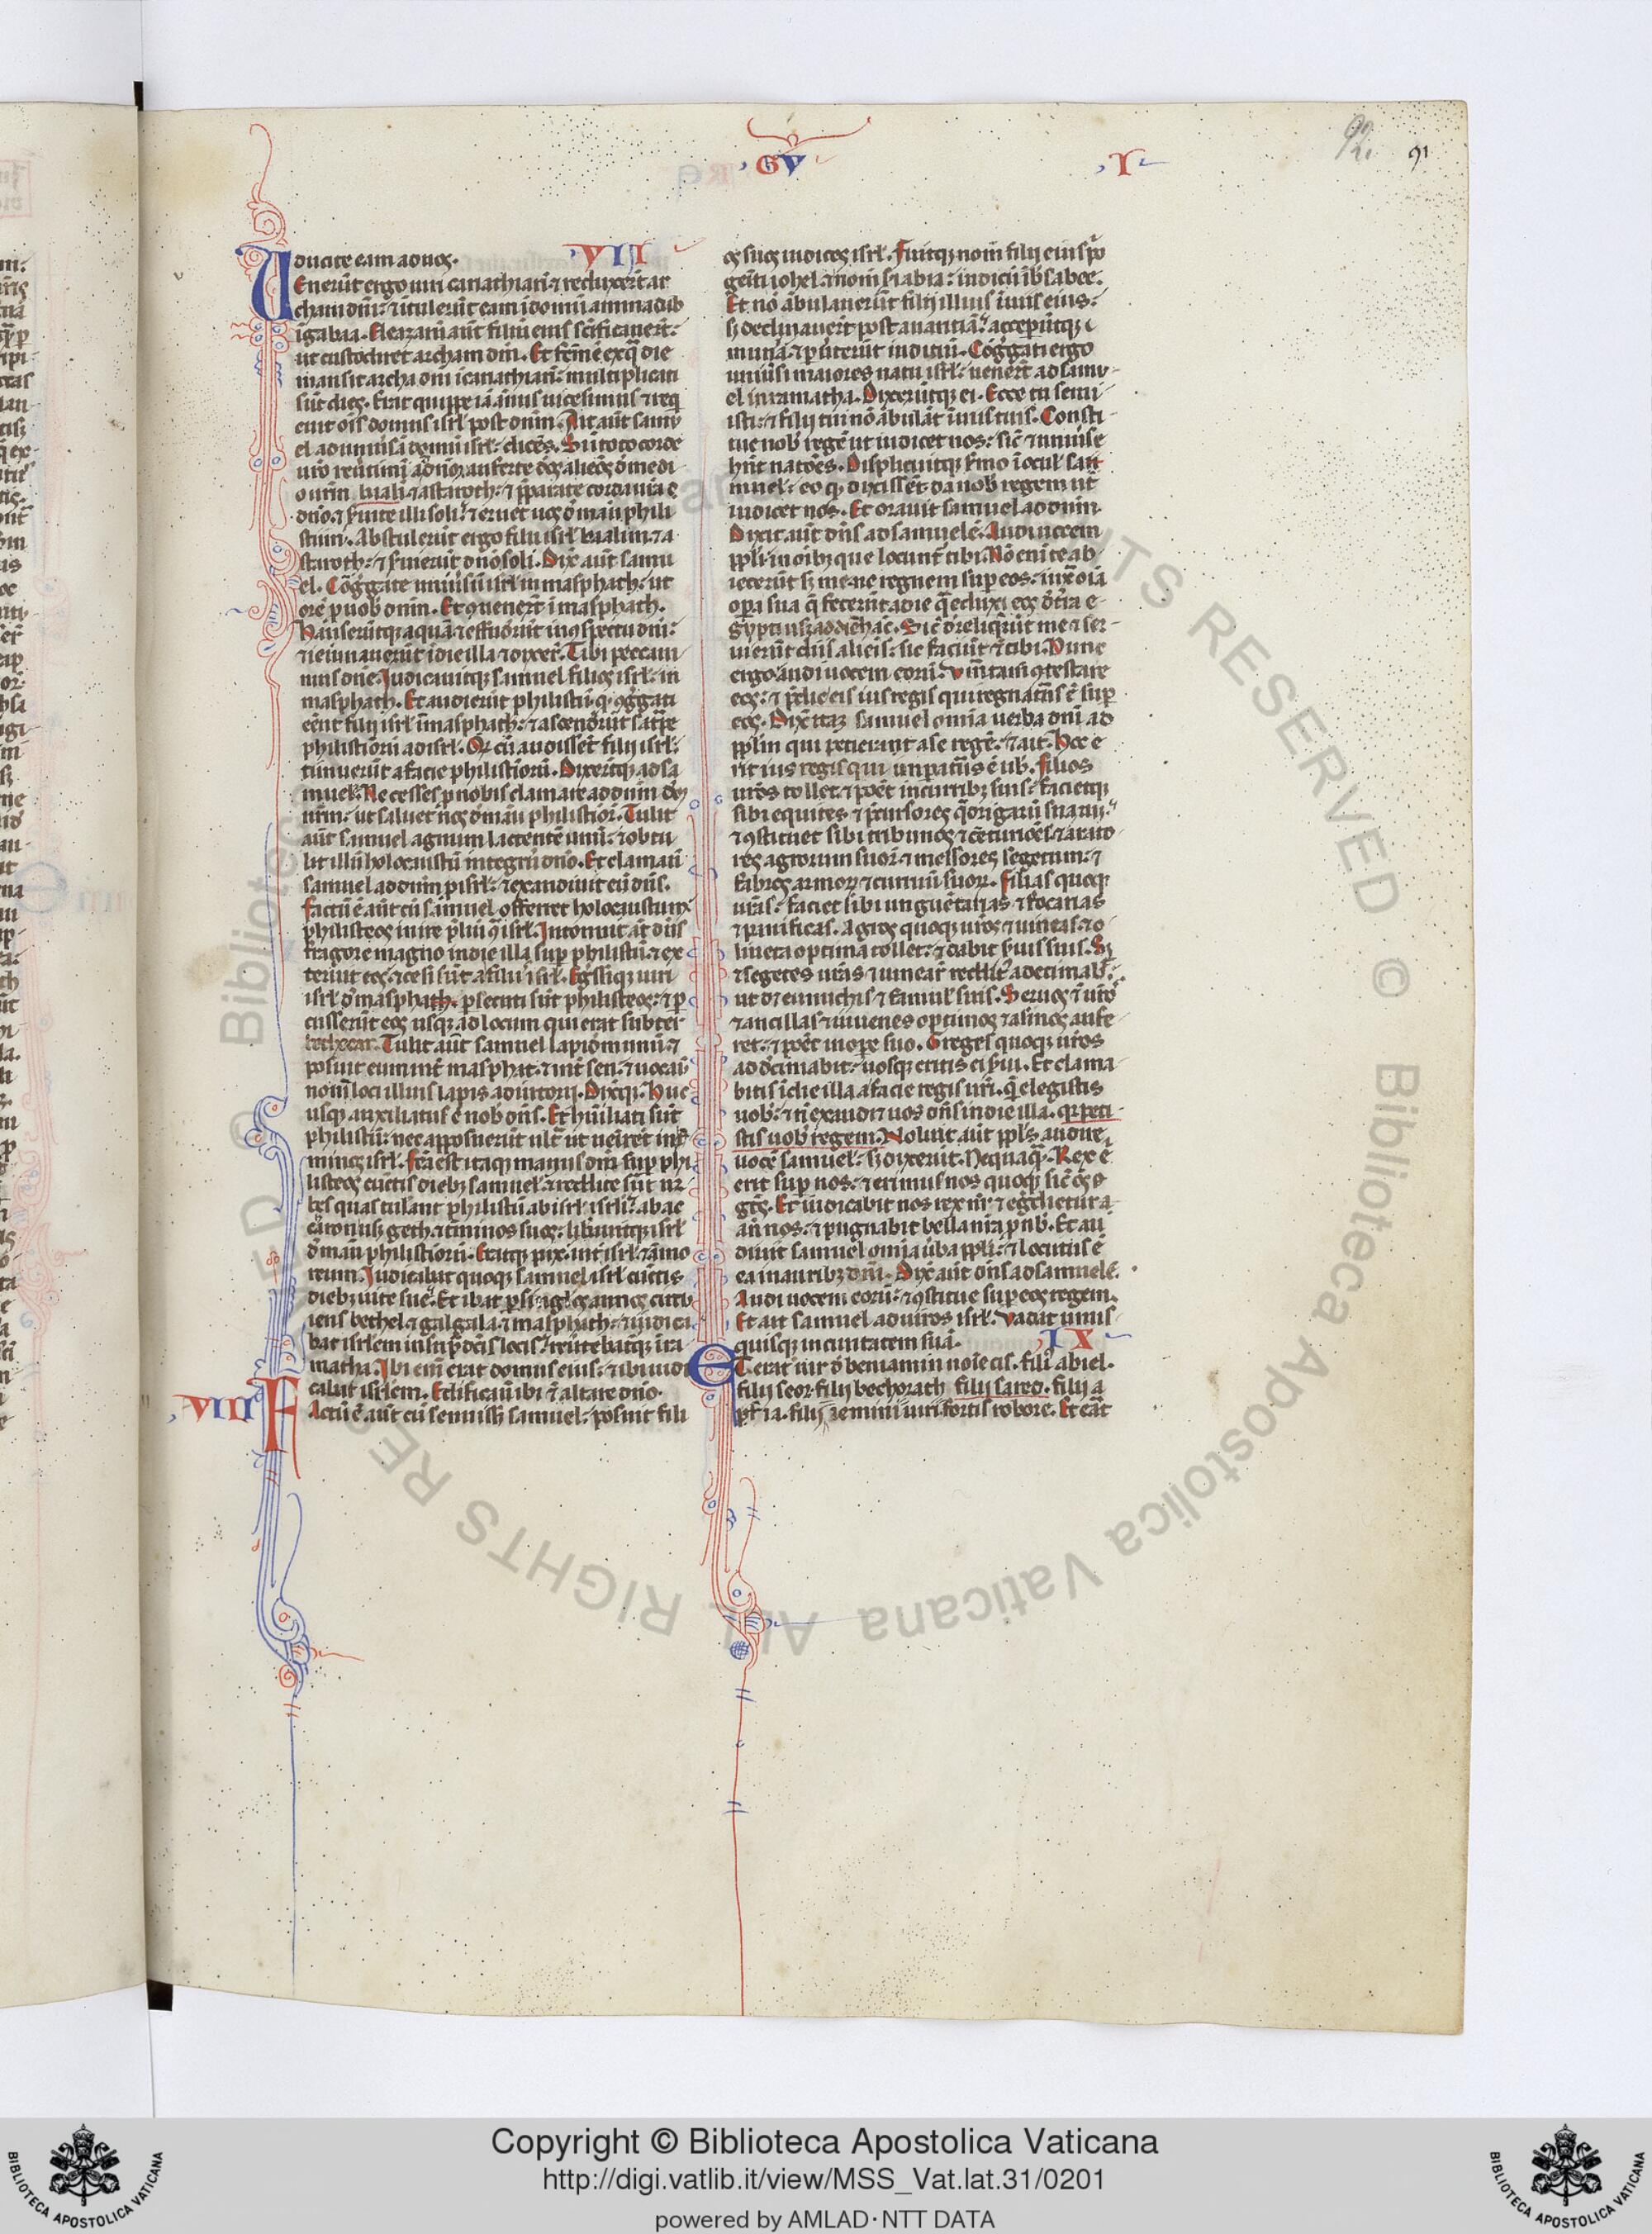 92.
91
GV
I
VII
ducite eam ad uos.
Eneru̅t ergo uiri cariathiari̅ ⁊ reduxeru̅t ar
cham dn̅i: ⁊ i̅tuleru̅t eam i̅ domu̅ aminadab
i̅ gabaa. Eleazaru̅ aut̅ filiu̅ eius sc̅ificaueru̅t:
ut custodiret archam dn̅i. Et fc̅m e̅ ex q̅ die
mansit archa dn̅i i̅ cariathiari̅: multiplicati
su̅t dies. Erat quippe ia̅ a̅nus uicesimus ⁊ req
euit ois domus isrl̅ post dn̅m. Ait aut̅ samu
el ad uniu̅sa̅ domu̅ isrl̅: dice̅s. Si i̅ toto corde
ur̅o reu̅timi̅ ad dn̅m: auferte deos alienos de medi
o ur̅m baali̅ ⁊ astaroth: ⁊ p̅parate corda ur̅a
dn̅o: ⁊ s̅uite illi soli: ⁊ eruet uos de manu phili
stiim. Abstuleru̅t ergo filii isrl̅ baalim ⁊ a
staroth: ⁊ s̅uieru̅t dn̅o soli. Dix̅ aut̅ samu
el. Co̅g̅gate uniu̅su̅ isrl̅ in masphath: ut
ore̅ p uob̅ dn̅m. Et ꝯueneru̅t i̅ masphath.
Hauseru̅tq; aqua̅ ⁊ effuderu̅t in ꝯspectu dn̅i:
⁊ ieiunaueru̅t i̅ die illa ⁊ dixeru̅t. Tibi peccaui
mus dn̅e. Iudicauitq; samuel filios isrl̅ in
masphath. Et audieru̅t philistii̅ q ꝯg̅gati
ee̅nt filii isrl̅ i̅ masphath: ⁊ ascenderu̅t sat̅pe
philistioru̅ ad isrl̅. Qr cu̅ audisse̅t filii isrl̅:
timueru̅t a facie philistioru̅. Dixeru̅tq; ad sa
muel. Ne cesses p nobis clamare ad dn̅m deu̅
nr̅m: ut saluet nos de manu philistior̅. Tulit
aut̅ samuel agnum lactente̅ unu̅: ⁊ obtu
lit illu̅ holocaustu̅ integru̅ dn̅o. Et clamauit
samuel ad dn̅m p isrl̅: ⁊ exaudiuit eu̅ dn̅s.
Factu̅ e̅ aut̅ cu̅ samuel offerret holocaustum:
philisteos inire p̅liu̅ ꝯ̅ isrl̅. Intonuit aut̅ dn̅s
fragore magno in die illa sup philistii̅: ⁊ ex
teruit eos: ⁊ cesi su̅t a filiis isrl̅. Eg̅ssiq; uiri
isrl̅ de masphath. p̱secuti su̅t philisteos: ⁊ p̱
cusseru̅t eos usq; ad locum qui erat subter
bethcar. Tulit aut̅ samuel lapide̅ unu̅: ⁊
posuit eum int̅ masphat: ⁊ int̅ sen: ⁊ uocauit
nom̅ loci illius lapis adiutorii. Dixitq;. Huc
usq; auxiliatus e̅ nob̅ dn̅s. Et humiliati su̅t
philistii̅: nec apposueru̅t ult̅ ut uenire̅t in t̅
minos isrl̅. Fc̅a est itaq; manus dn̅i sup phi
listeos cu̅ctis dieb; samuel: ⁊ reddite su̅t ur
bes quas tulera̅t philistii̅ ab isrl̅ isrli: ab ac
caron usq; geth ⁊ t̅minos suos: lib̅auitq; isrl̅
de manu philistioru̅. Eratq; pax int̅ isrl̅ ⁊ amo
reum. Iudicabat quoq; samuel isrl̅ cu̅ctis
dieb; uite sue. Et ibat p̱ si̅gulos annos circu
iens bethel ⁊ galgala ⁊ masphath: ⁊ iudica
bat isrlem in sup̅dictis locis: reu̅tebat̅q; i̅ ra
matha. Ibi eni̅ erat domus eius: ⁊ ibi iudi
cabat isrlem. Edificauit ibi ⁊ altare dn̅o.
VIII
Factu̅ e̅ aut̅ cu̅ senuiss; samuel: posuit fili
os suos iudices isrl̅. Fuitq; nom̅ filii eius p̅mo
geniti iohel: ⁊ nom̅ s̅i abia: iudicu̅ i̅ bsabee.
Et no̅ a̅bulaueru̅t filii illius i̅ uiis eius:
s; declinaueru̅t post auaritia̅: acceperu̅tq;
mun̅a: ⁊ p̱uerteru̅t iudiciu̅. Co̅g̅gati ergo
uniu̅si maiores natu isrl̅: uen̅eru̅t ad samu
el in ramatha. Dixeru̅tq; ei. Ecce tu senu
isti: ⁊ filii tui no̅ a̅bula̅t i̅ uiis tuis. Consti
tue nob̅ rege̅ ut iudicet nos: sic̅ ⁊ uniu̅se
hn̅t nato̅es. Displicuitq; s̅mo i̅ oculis sa
muel: eo q dixisse̅t: da nob̅ regem ut
iudicet nos. Et orauit samuel ad dn̅m.
Dixit aut̅ dn̅s ad samuele̅. Audi uocem
ppl̅i in oi̅b; que locunt̅ tibi. No̅ eni̅ te ab
ieceru̅t s; me: ne regnem sup eos: iux̅ oi̅a
opa sua q̅ feceru̅t a die q̅ eduxi eos de t̅ra e
gypti usq; ad die̅ ha̅c. Sic̅ dereliqueru̅t me ⁊ ser
uieru̅t diis alieis: sic faciu̅t ⁊ tibi. Nunc
ergo audi uocem eoru̅. Veru̅tam̅ ꝯtestare
eos: ⁊ p̅dic eis ius regis qui regnatur̅s e̅ sup
eos. Dix̅ itaq; samuel omnia uerba dn̅i ad
ppl̅m qui petierant a se rege̅: ⁊ ait. Hoc e
rit ius regis qui impatur̅s e̅ ub̅. Filios
ur̅os tollet: ⁊ pone̅t in currib; suis: facietq;
sibi equites ⁊ p̅cursores q̅drigaru̅ suaru̅:
⁊ ꝯstituet sibi tribunos ⁊ ce̅turiones: ⁊ arato
res agrorum suor̅ ⁊ messores segetum: ⁊
fabros armor̅ ⁊ curruu̅ suor̅. Filias quoq;
ur̅as: faciet sibi unguentarias ⁊ focarias
⁊ panificas. Agros quoq; ur̅os ⁊ uineas: ⁊ o
liueta optima tollet: ⁊ dabit s̅uis suis. S;
⁊ segetes ur̅as ⁊ uinear̅ reddit̅ addecimabit:
ut det eunuchis ⁊ famulis suis. Seruos ⁊ ur̅os
⁊ ancillas ⁊ iuuenes optimos ⁊ asinos aufe
ret: ⁊ pone̅t in ope suo. Greges quoq; ur̅os
addecimabit: uosq; eritis ei s̅ui. Et clama
bitis i̅ die illa a facie regis ur̅i. q̅ elegistis
uob̅: ⁊ n̅ exaudi uos dn̅s in die illa. qr peti
stis uob̅ regem. Noluit aut̅ ppl̅s audire
uoce̅ samuel: s; dixeru̅t. Nequaq̅. Rex e̅
erit sup nos: ⁊ erimus nos quoq; sic̅ oe̅s
ge̅tes. Et iudicabit nos rex nr̅: ⁊ eg̅dietur a̅
an̅ nos: ⁊ pugnabit bella nr̅a p nob̅. Et au
diuit samuel omia u̅ba ppl̅i: ⁊ locutus e̅
ea in aurib; dn̅i. Dix̅ aut̅ dn̅s ad samuele̅.
Audi uocem eoru̅: ⁊ ꝯstitue sup eos regem.
Et ait samuel ad uiros isrl̅. Vadat unus
quisq; in ciuitatem sua̅.
IX
ET erat uir de beniamin no̅ie cis. filii abiel.
filii seor. filii bechorath filii sareo. filii a
phia. filii zemini uiri fortis robore. Et era̅t
Copyright © Biblioteca Apostolica Vaticana
http://digi.vatlib.it/view/MSS_Vat.lat.31/0201
powered by AMLAD·NTT DATA
BIBLIOTECA APOSTOLICA VATICANA
BIBLIOTECA APOSTOLICA VATICANA
© Biblioteca Apostolica Vaticana ALL RIGHTS RESERVED